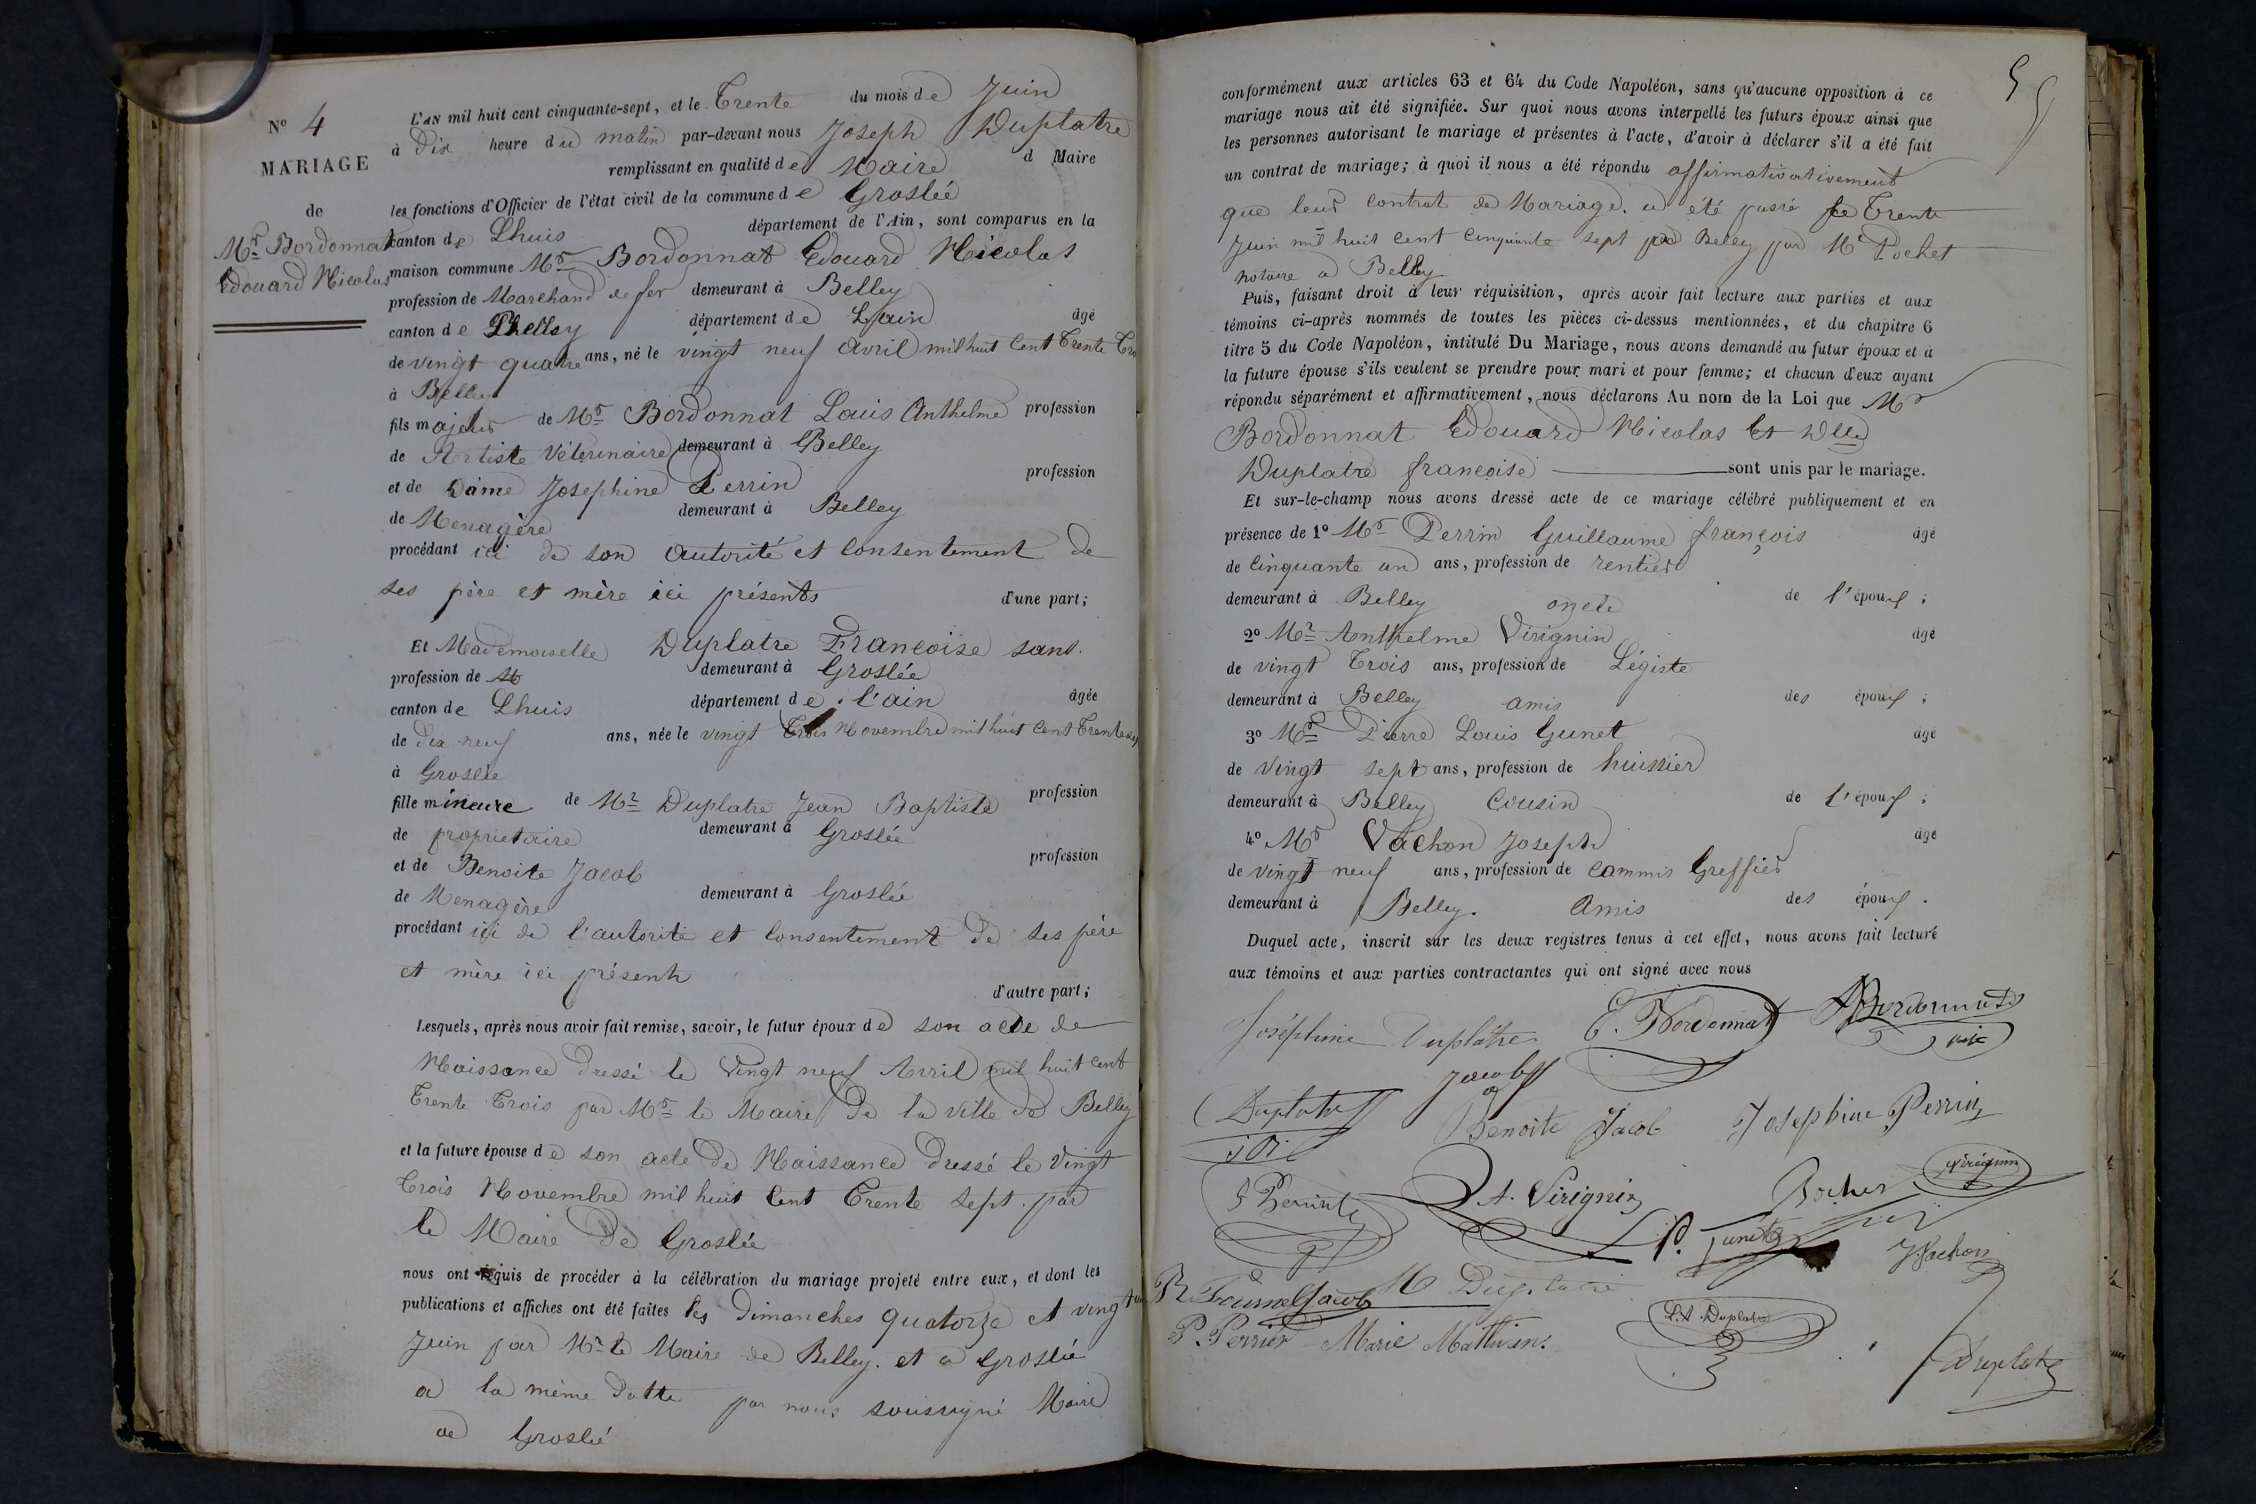 N° 4
MARIAGE
de
Mr Bordonnat
Edouard Nicolas
L'AN mil huit cent cinquante-sept, et le Trente du mois de Juin
à Dix heure du matin par-devant nous Joseph Duplatre
remplissant en qualité de Maire d Maire
les fonctions d'Officier de l'état civil de la commune de Groslée
canton de Lhuis département de l'Ain, sont comparus en la
maison commune Mr Bordonnat Edouard Nicolas
profession de Marchand de fer demeurant à Belley
canton de Belley département de L'ain âgé
de vingt quatre ans, né le vingt neuf avril mil huit Cent Trente Tro
à Belley
fils majeur de Mr Bordonnat Louis Anthelme profession
de Artiste Véterinaire demeurant à Belley
et de Dame Josephine Perrin profession
de Menagère demeurant à Belley
procédant ici de son autorité et consentement de
ses père et mère ici présents d'une part;
Et Mademoiselle Duplatre Francoise sans
profession de demeurant à Groslée
canton de Lhuis département de l'ain âgée
de dix neuf ans, née le vingt Trois Novembre mil huit Cent Trente
à Groslée
fille mineure de Mr Duplatre Jean Baptiste profession
de proprietaire demeurant à Groslée
et de Benoite Jacob profession
de Menagère demeurant à Groslée
procédant ici de l'autorité et consentement de ses père
et mère ici présents
d'autre part;
Lesquels, après nous avoir fait remise, savoir, le futur époux de son acte de
Naissance Dressé le Vingt neuf Avril mil huit cent
Trente Trois par Mr le Maire De la ville de Belley
et la future épouse de son acte De Naissance Dressé le Vingt
Trois Novembre mil huit Cent Trente sept. par
le Maire De Groslée
nous ont requis de procéder à la célébration du mariage projeté entre eux, et dont les
publications et affiches ont été faites les Dimanches quatorze et vingt un
Juin par Mr le Maire de Belley. et a Groslée
a la même Datte par nous soussigné Maire
de Groslée
conformément aux articles 63 et 64 du Code Napoléon, sans qu'aucune opposition à ce
mariage nous ait été signifiée. Sur quoi nous avons interpellé les futurs époux ainsi que
les personnes autorisant le mariage et présentes à l'acte, d'avoir à déclarer s'il a été fait
un contrat de mariage; à quoi il nous a été répondu affirmativativement
que leur contrat de Mariage. a été passé le Trente
Juin mil huit cent cinquante sept Beley par Me Pochet
notaire a Belley
Puis, faisant droit à leur réquisition, après avoir fait lecture aux parties et aux
témoins ci-après nommés de toutes les pièces ci-dessus mentionnées, et du chapitre 6
titre 5 du Code Napoléon, intitulé Du Mariage, nous avons demandé au futur époux et à
la future épouse s'ils veulent se prendre pour mari et pour femme; et chacun d'eux ayant
répondu séparément et affirmativement, nous déclarons Au nom de la Loi que Mr
Bordonnat Edouard Nicolas Et Dlle
Duplatre francoise sont unis par le mariage.
Et sur-le-champ nous avons dressé acte de ce mariage célébré publiquement et en
présence de 1° Mr Perrin Guillaume françois âgé
de Cinquante un ans, profession de rentier
demeurant à Belley oncle de l'époux ;
2° Mr Anthelme Virignin âgé
de vingt Trois ans, profession de Légiste
demeurant à Belley amis des époux ;
3° Mr Pierre Louis Gunet âgé
de Vingt sept ans, profession de huissier
demeurant à Belley Cousin de l'époux ;
4° Mr Vachon Joseph âgé
de vingt neuf ans, profession de Commis Greffier
demeurant à Belley. Amis des époux .
Duquel acte, inscrit sur les deux registres tenus à cet effet, nous avons fait lecture
aux témoins et aux parties contractantes qui ont signé avec nous
Joséphine Duplâtre E. Bordonnat Bordonnat
Duplatre Jacob
Benoite Jacob Josephine Perrin
A. Virignin Virignin
Vachon
Jacob M Duplatre
L.A. Duplatre
P. Perrier Marie Mathian
Duplatre